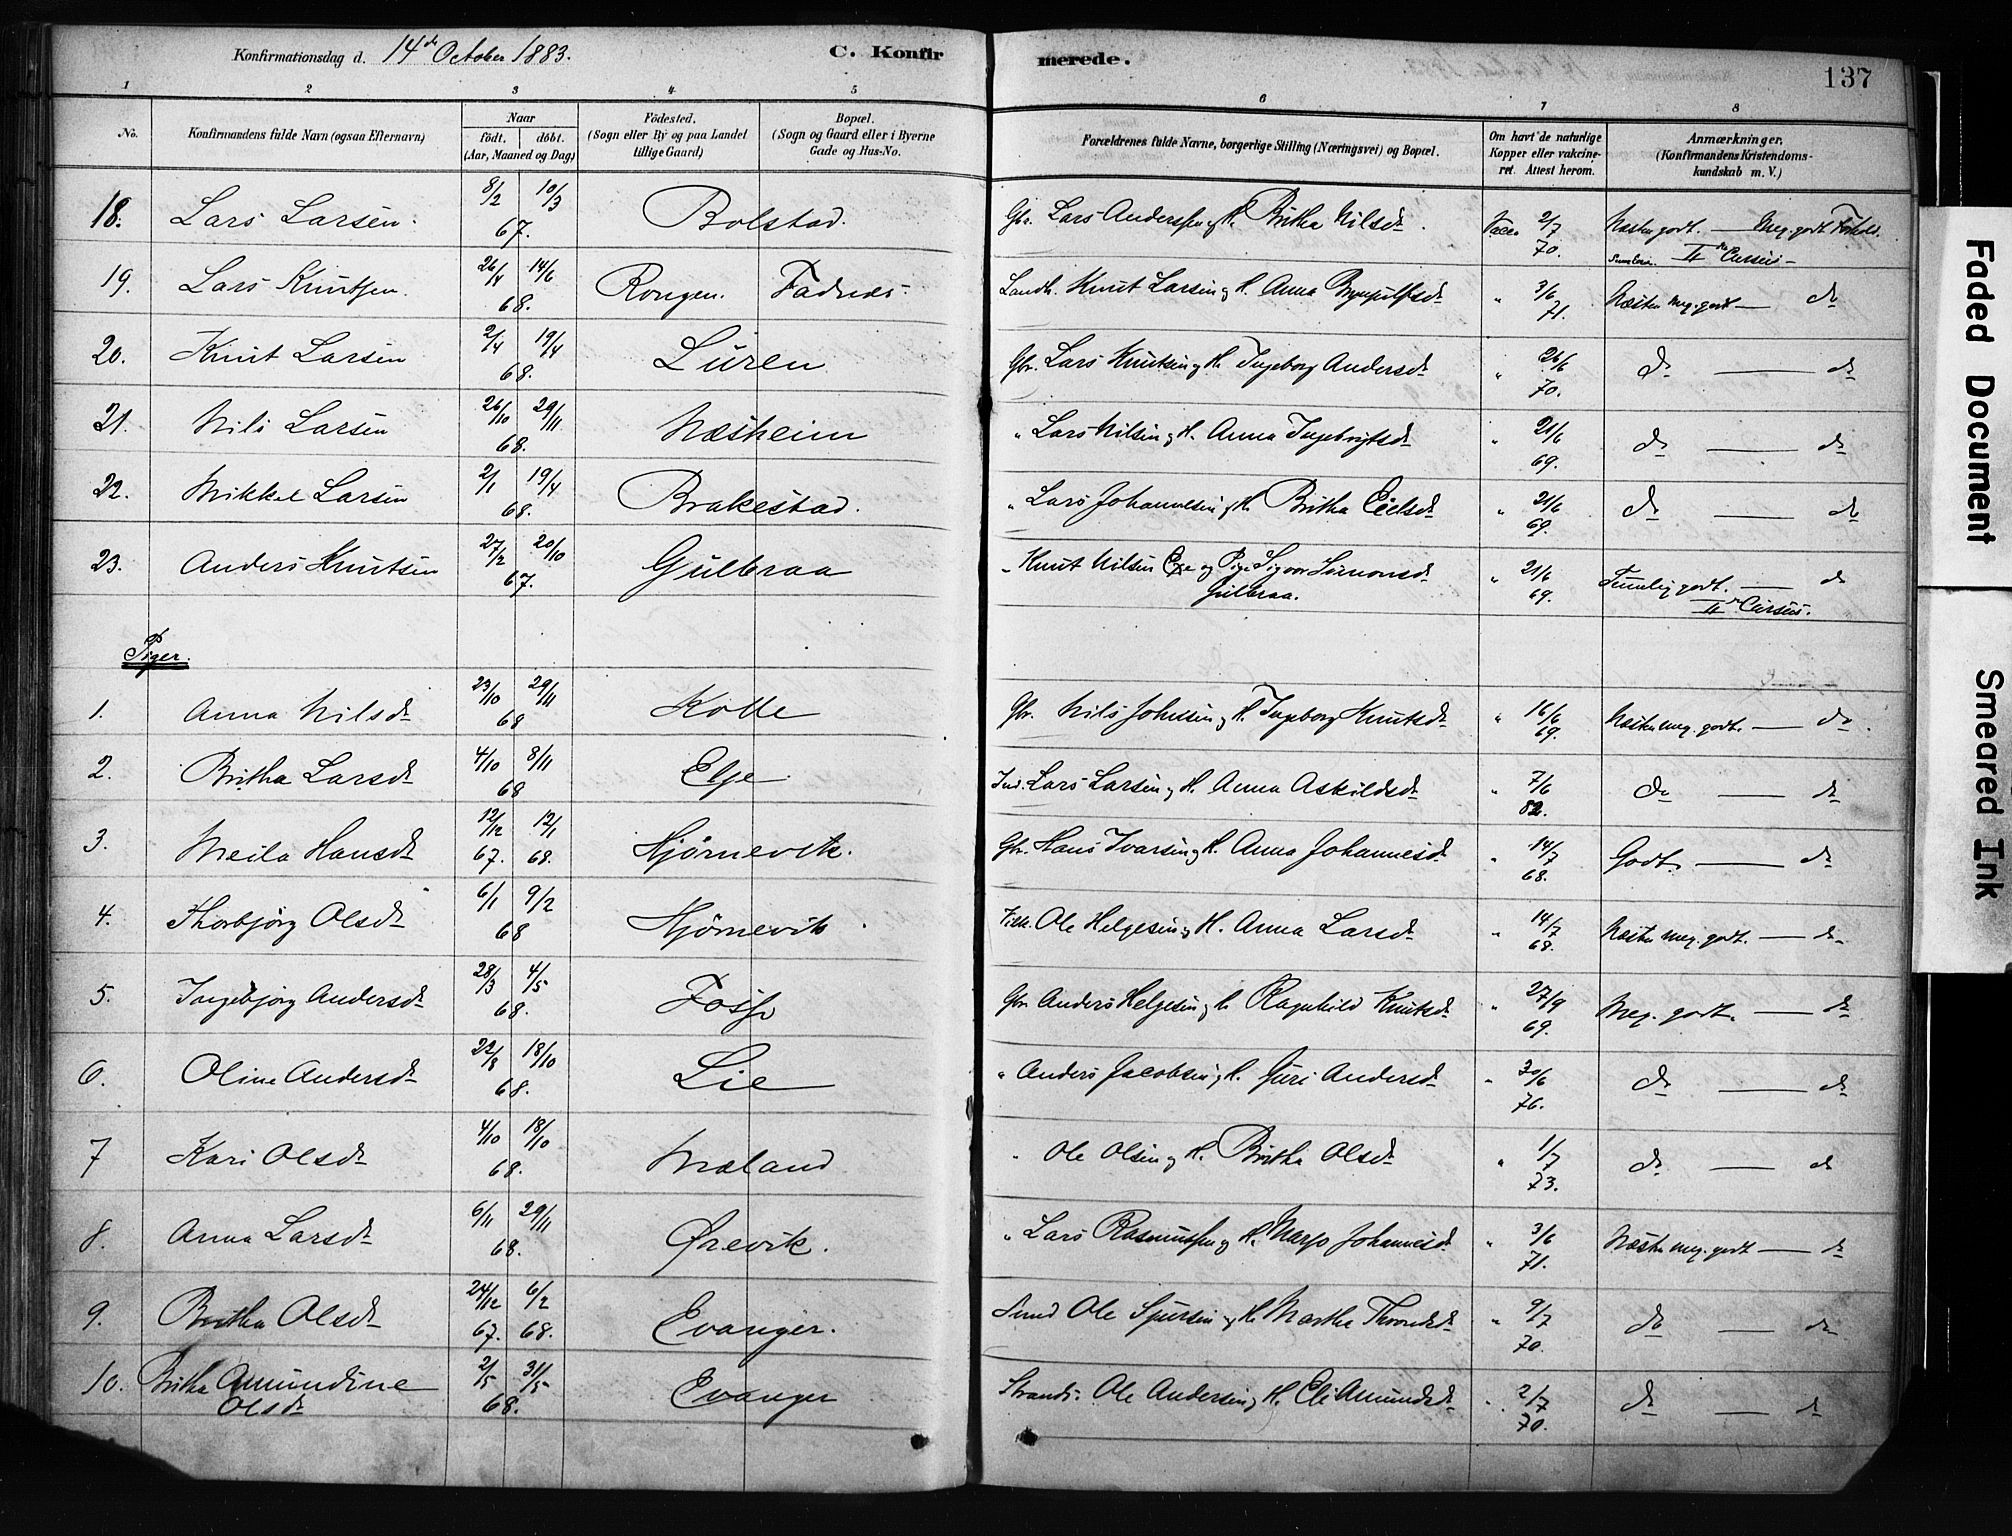 Konfirmationsdag d. 14de October 1883. C. Konfirmerede. 137
1 2 3 4 5 6 7 8
No. Konfirmandens fulde Navn (ogsaa Efternavn) Naar født. døbt. (Aar, Maaned og Dag) Fødested. (Sogn eller By og paa Landet tillige Gaard) Bopæl. (Sogn og Gaard eller i Byerne Gade og Hus-No. Forældrenes fulde Navne, borgerlige Stilling (Næringsvei) og Bopæl. Om havt de naturlige Kopper eller vakcineret. Attest herom. Anmærkninger. (Konfirmandens Kristendomskundskab m. V.)
18. Lars Larsen. 8/2 10/3 67. Bolstad. Gbr. Lars Anderssen og H. Britha Nilsdr. Vacc. 2/7 70. Næsten godt. — Meg. godt Forhold. IIde Cursus —
19. Lars Knutsen. 26/4 14/6 68. Rongen. Fadnes. Landh. Knut Larsen og H. Anna Brynjulfsdr " 3/6 71. Næsten meg. godt — do
20. Knut Larsen 2/4 19/4 68. Lüren Gbr. Lars Knutsen og H. Ingeborg Andersdr " 26/6 70. do — do
21. Nils Larsen 26/10 29/11 68. Næsheim " Lars Nilsen og H. Anna Ingebrigtsdr " 21/6 69. do — do
22. Mikkel Larsen 2/1 19/4 68. Brakestad. " Lars Johannesen og H. Britha Eielsdr " 21/6 69. do — do
23. Anders Knutsen 27/2 20/10 67. Gülbraa " Knut Nilsen Exe og Pige Sigvor Simonsdr Gülbraa. " 21/6 69. Temlig godt. — do
IIde Cursus.
Piger.
1. Anna Nilsdr 23/10 29/11 68 Kolle Gbr. Nils Johnsen og H. Ingeborg Knutsdr " 16/6 69. Næsten meg. godt. — do
2. Britha Larsdr 4/10 8/11 68 Elje Ind. Lars Larsen og H. Anna Askildsdr " 7/6 82. do — do
3. Meila Hansdr 12/12 67. 12/1 68. Hjørnevik. Gbr. Hans Ivarsen og H. Anna Johannesdr " 14/7 68. Godt. — do
4. Thorbjørg Olsdr 6/1 9/2 68 Hjørnevik Ole Helgesen og H. Anna Larsdr " 14/7 68. Næsten meg. godt. — do
5. Ingebjørg Andersdr 28/3 4/5 68. Fosse Gbr Anders Helgesen og H. Ragnhild Knutsdr " 27/9 69. Meg. godt. — do
6. Oline Andersdr 22/8 18/10 68. Lie " Anders Jacobsen og H. Guri Andersdr " 30/6 76. do — do
7 Kari Olsdr 4/10 18/10 68. Mæland " Ole Olsen og H. Britha Olsdr " 1/7 73. do — do
8. Anna Larsdr 6/11 29/11 68. Ørevik. " Lars Rasmussen og H. Marjo Johannesdr " 3/6 71. Næsten meg. godt — do
9. Britha Olsdr 24/12 67. 6/2 68. Evanger. Ind Ole Sjursen og H. Martha Thorsdr " 9/7 70. do — do
10. Britha Amundine Olsdr 2/5 31/5 68. Evanger Strands. Ole Andersen og H. Eli Amundsdr " 2/7 70. do — do
Faded Document
Smeared Ink